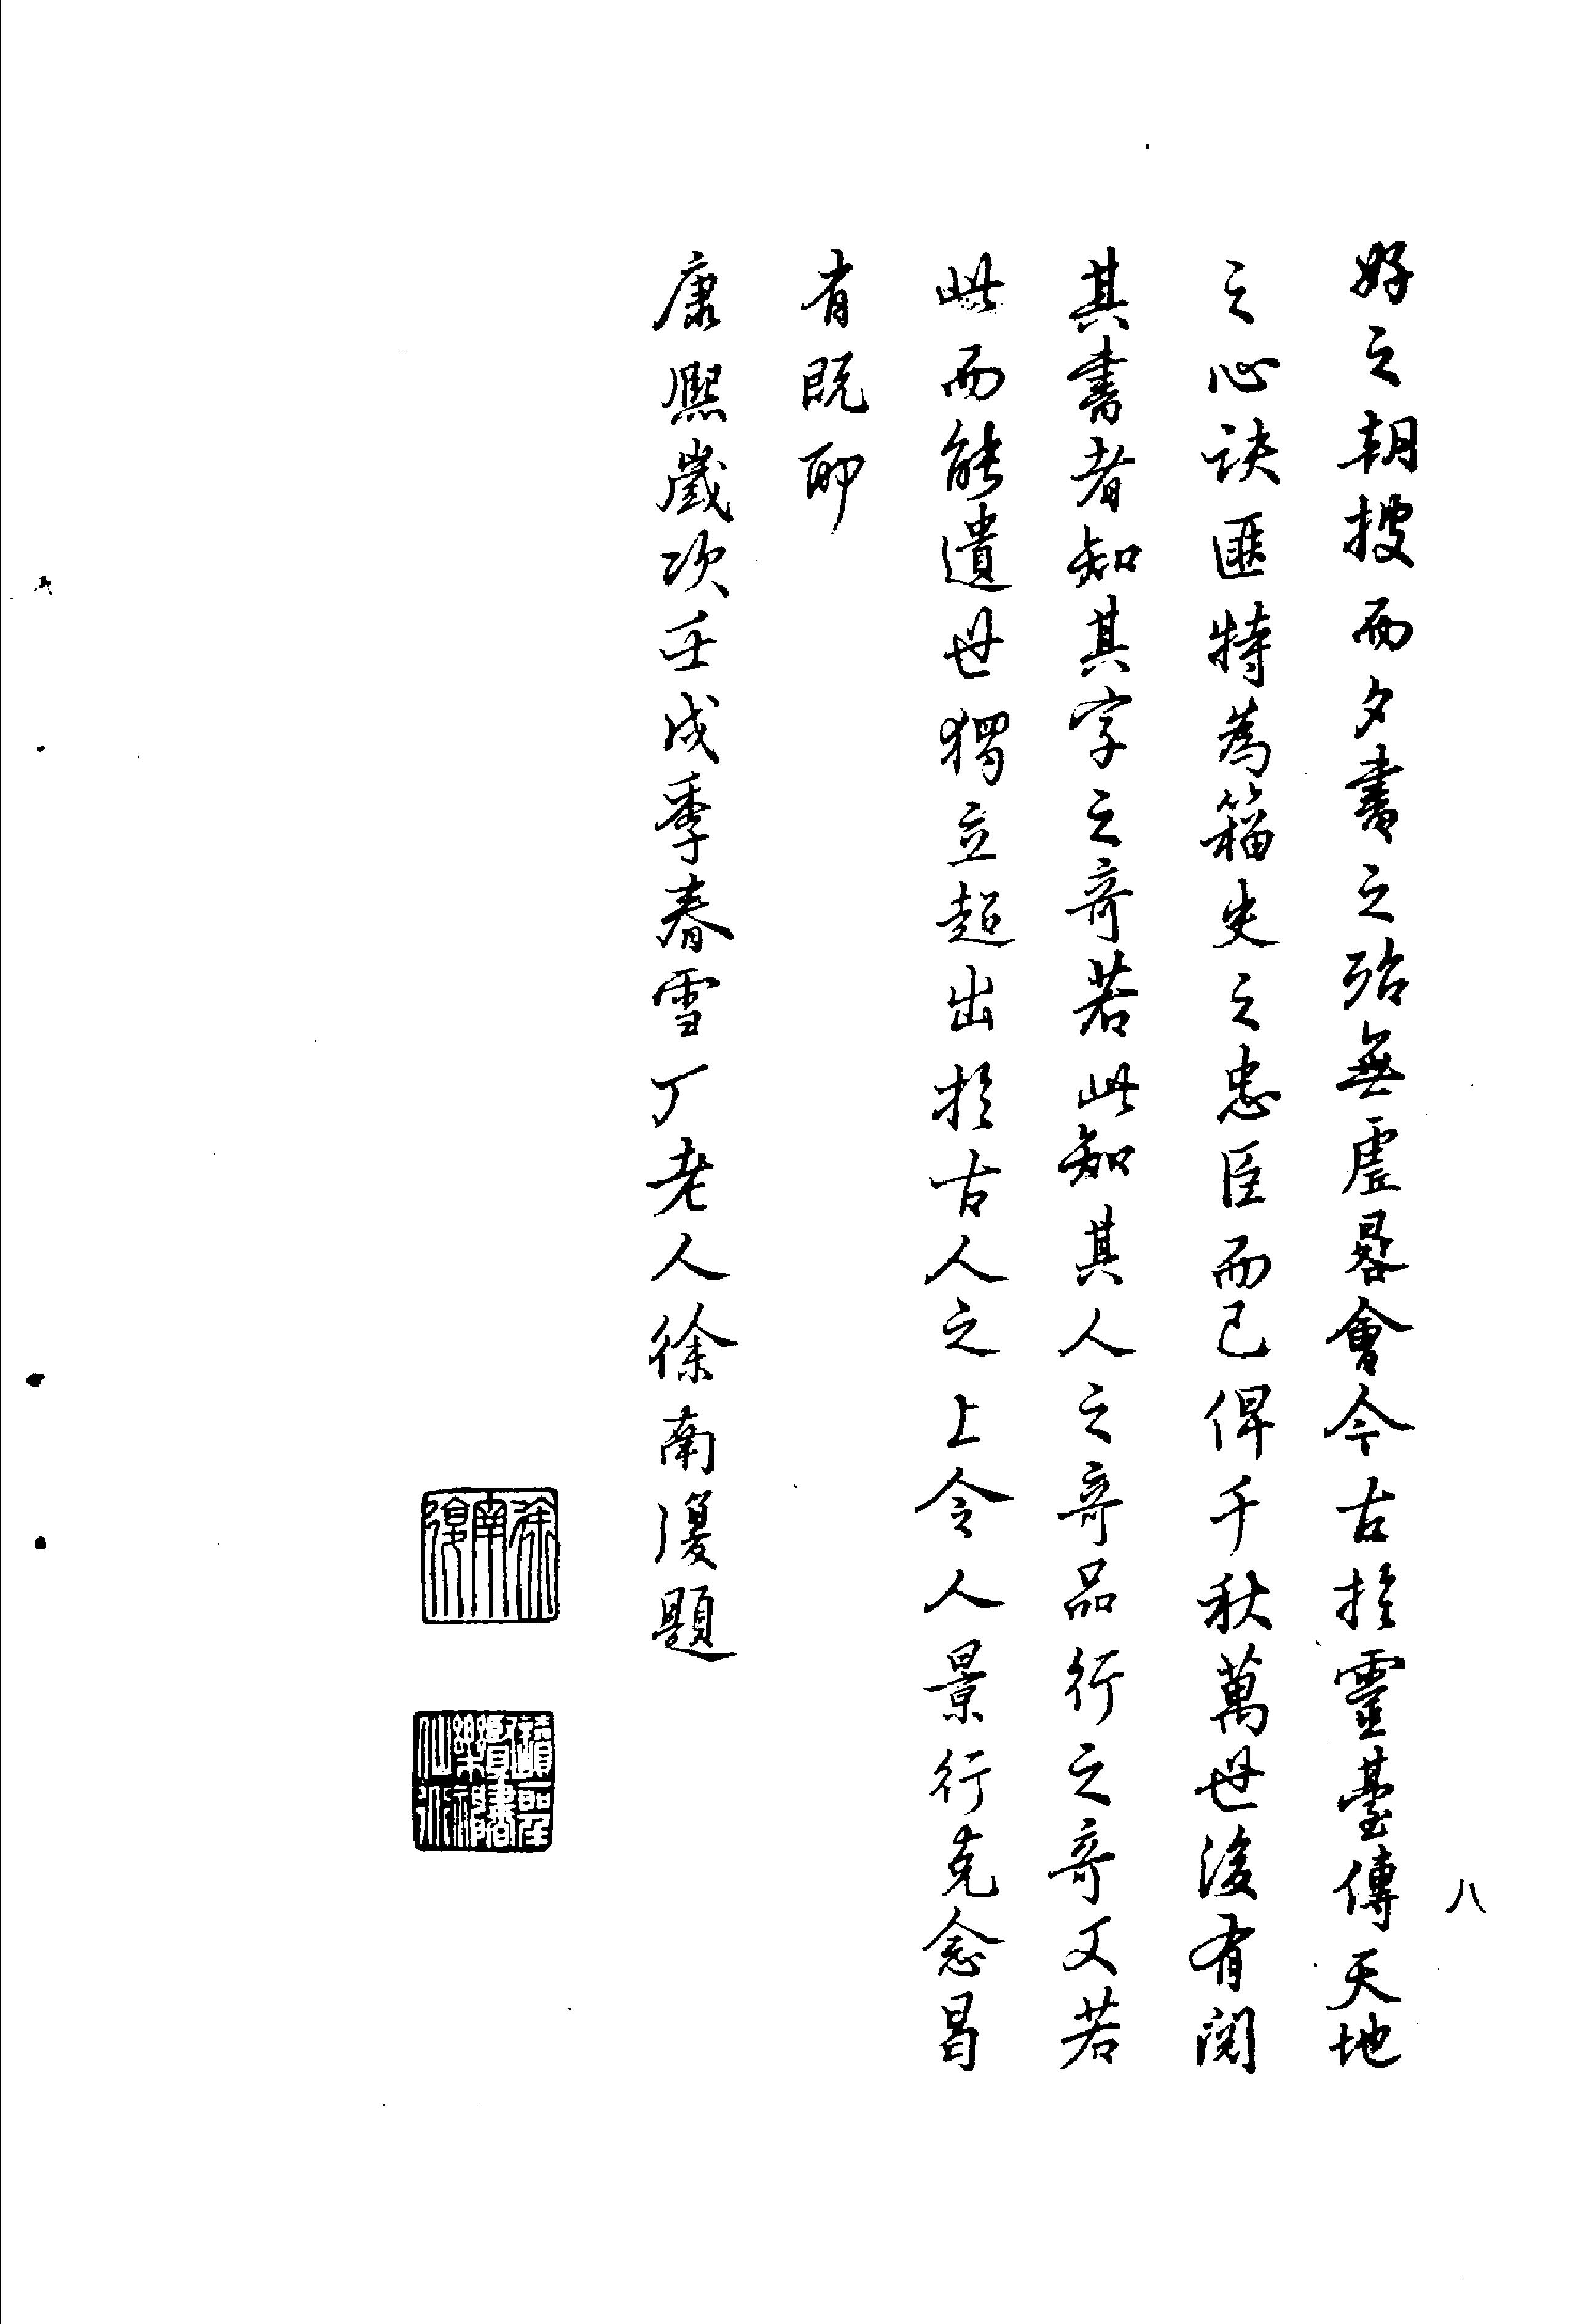 八
好之朝披而夕書之殆無虛晷會今古於靈臺傳天地
之心訣匪特為籀史之忠臣而已俾千秋萬世後有閱
其書者知其字之奇若此知其人之奇品行之奇又若
此而能遺世獨立超出於古人之上令人景行克念曷
有既耶
康熙歲次壬戌季春雪丁老人徐南題
徐南